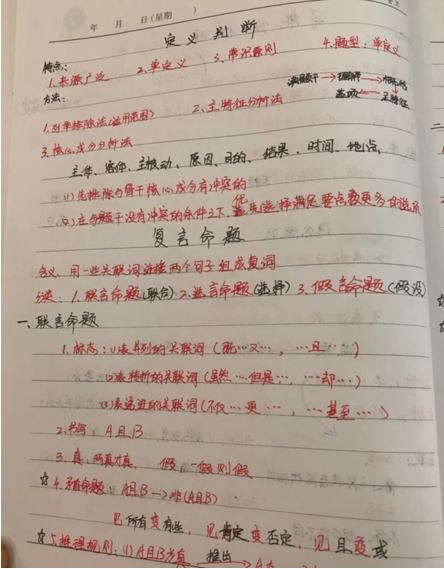 年 月 日(星期 )
定义判断
特点:
1.来源广泛 2.单定义 3.常识原则 4.题型:单定义
方法:
读题干→理解→
选项←主特征
1.列举排除法(适用范围) 2.主特征分析法
3.核心成分分析法
主体、客体、主被动、原因、目的、结果、时间、地点,
(1)先排除与骨干核心成分有冲突的
(2)在与题干没有冲突的条件之下,优先选择满足要点数更多的选项
复言命题
含义、用一些关联词连接两个句子组成复词
分类:1.联言命题(联合) 2.选言命题(选择) 3.假言命题(假设)
一、联言命题
1.标志:(1)表并列的关联词(既…又…,…且…)
(2)表转折的关联词(虽然…但是…,…却…)
(3)表递进的关联词(不仅…更…,…甚至…)
2.书写:A且B
3.真:两真才真, 假:一假则假
☆4.矛盾命题:A且B→非(A且B)
见所有变有些,见肯定变否定,见且变或
☆5.推理规则:(1)A且B为真 推出→A